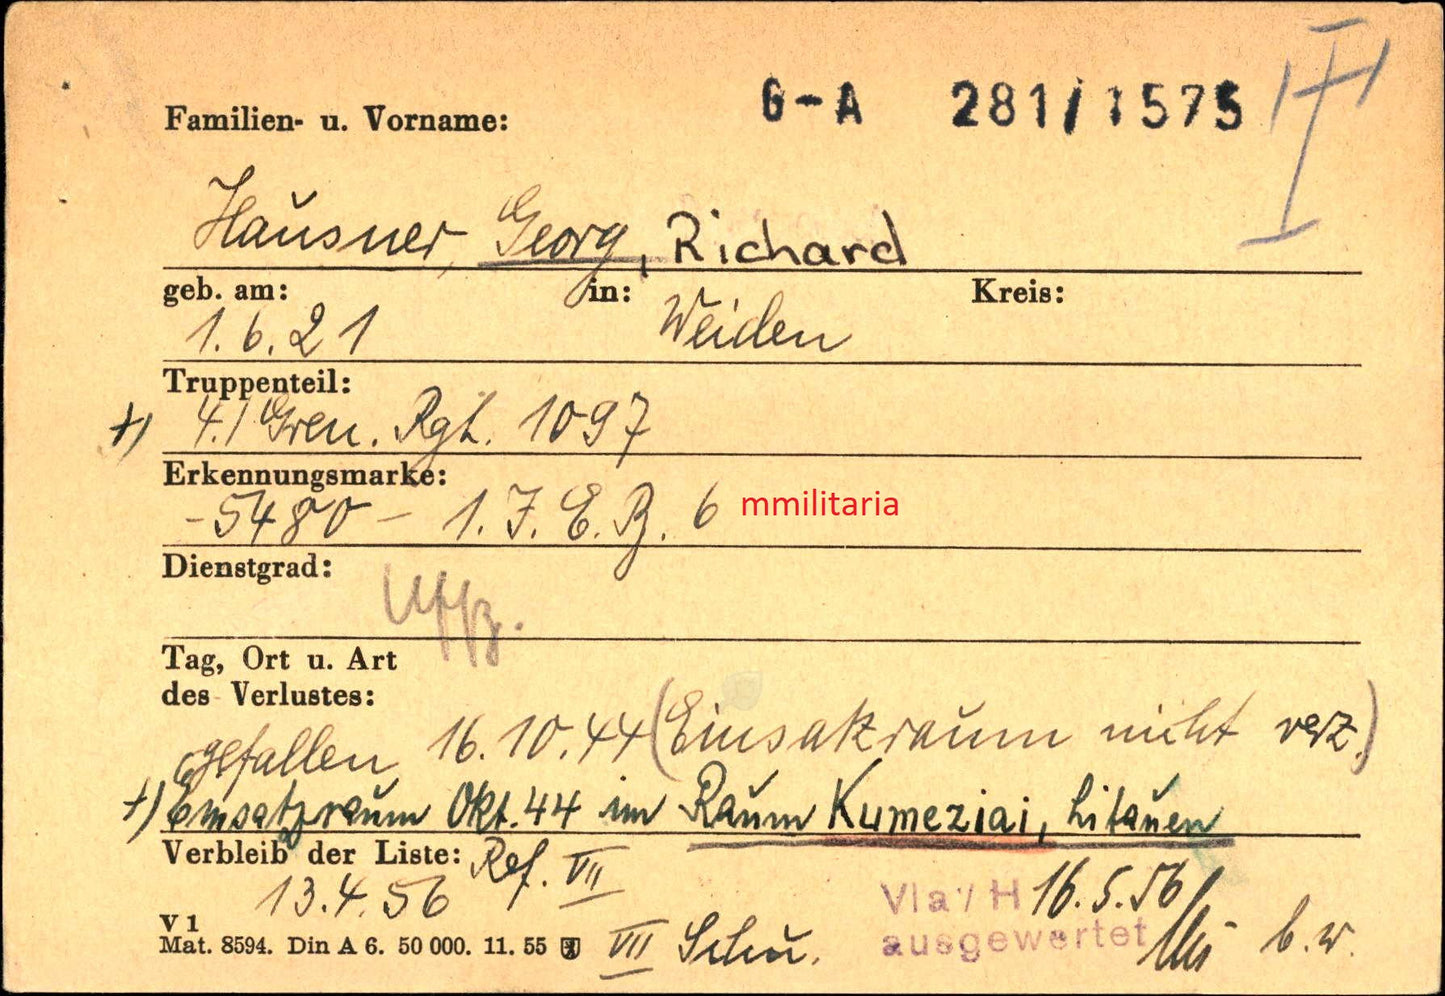 G-A 281/1575
Familien- u. Vorname:
Hausner, Georg, Richard
geb. am: in: Kreis:
1.6.21 Weiden
Truppenteil:
+) 4./Gren. Rgt. 1097
Erkennungsmarke:
-5480- 1. J. E. B. 6 mmilitaria
Dienstgrad:
Uffz.
Tag, Ort u. Art
des Verlustes:
gefallen 16.10.44 (Einsatzraum nicht verz.)
+) Einsatzraum Okt. 44 im Raum Kumeziai, Litauen
Verbleib der Liste: Ref. VII
13.4.56 VIa/H 16.5.56
V 1
Mat. 8594. Din A 6. 50 000. 11. 55 VII Schu. ausgewertet b.w.